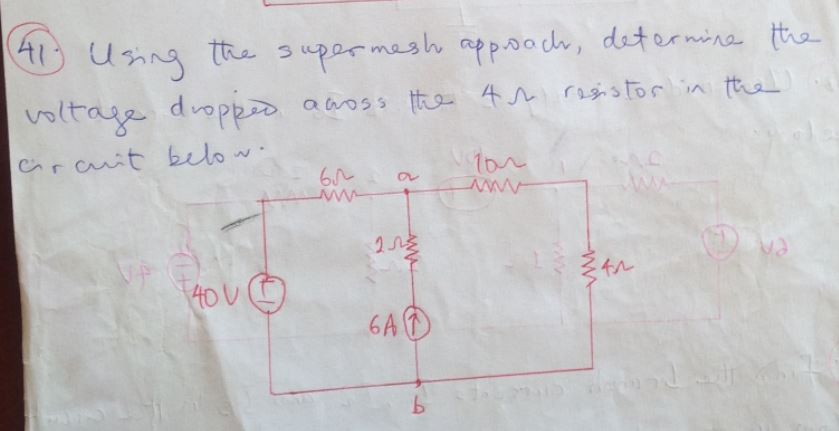 41. Using the supermesh approach, determine the
voltage dropped across the 4Ω resistor in the
circuit below.
6Ω a 10Ω
2Ω
4Ω
40V
6A
b